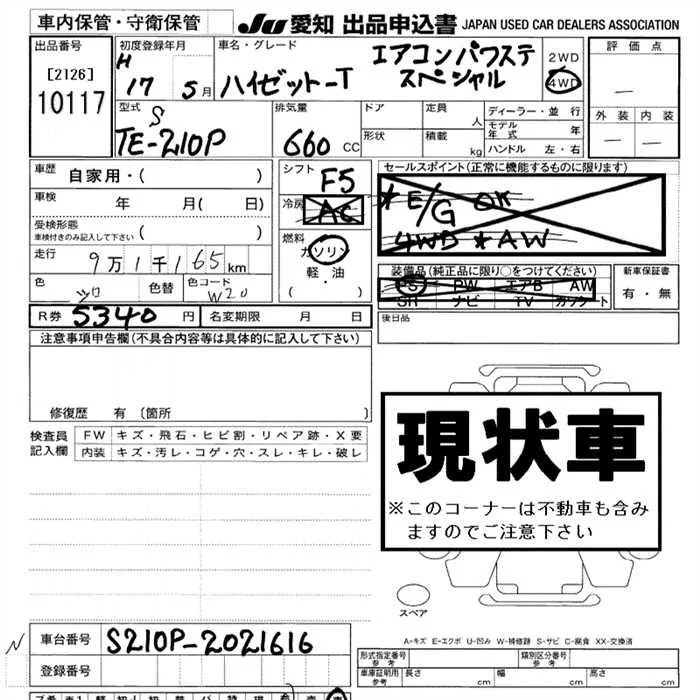 車内保管・守衛保管
JU 愛知 出品申込書 JAPAN USED CAR DEALERS ASSOCIATION
出品番号
[2126]
10117
初度登録年月
H 17 5月
車名・グレード
ハイゼット-T エアコンパワステ
スペシャル
2WD
4WD
評価点
—
外装 内装
— —
型式
S
TE-210P
排気量
660 CC
ドア
形状
定員
人
積載
kg
ディーラー・並行
モデル年式 年
ハンドル 左・右
車歴
自家用・( )
車検
年 月( 日)
受検形態
車検付きのみ記入して下さい ( )
走行
9万1千165km
色
シロ
色替
色コード
W20
シフト
F5
冷房
AC
燃料
ガソリン
軽・油
( )
セールスポイント(正常に機能するものに限ります)
* E/G OK
4WD * AW
装備品(純正品に限り○をつけてください)
PS PW エアB AW
SR ナビ TV カセット
新車保証書
有・無
R券 5340 円 名変期限 月 日
後日品
注意事項申告欄(不具合内容等は具体的に記入して下さい)
修復歴 有 〔箇所 〕
検査員
記入欄
FW キズ・飛石・ヒビ割・リペア跡・X要
内装 キズ・汚レ・コゲ・穴・スレ・キレ・破レ
現状車
※このコーナーは不動車も含み
ますのでご注意下さい
スペア
A-キズ E-エクボ U-凹み W-補修跡 S-サビ C-腐食 XX-交換済
N
車台番号 S210P-2021616
登録番号
形式指定番号
参考
類別区分番号
参考
車庫証明用
参考
長さ cm 幅 cm 高さ cm